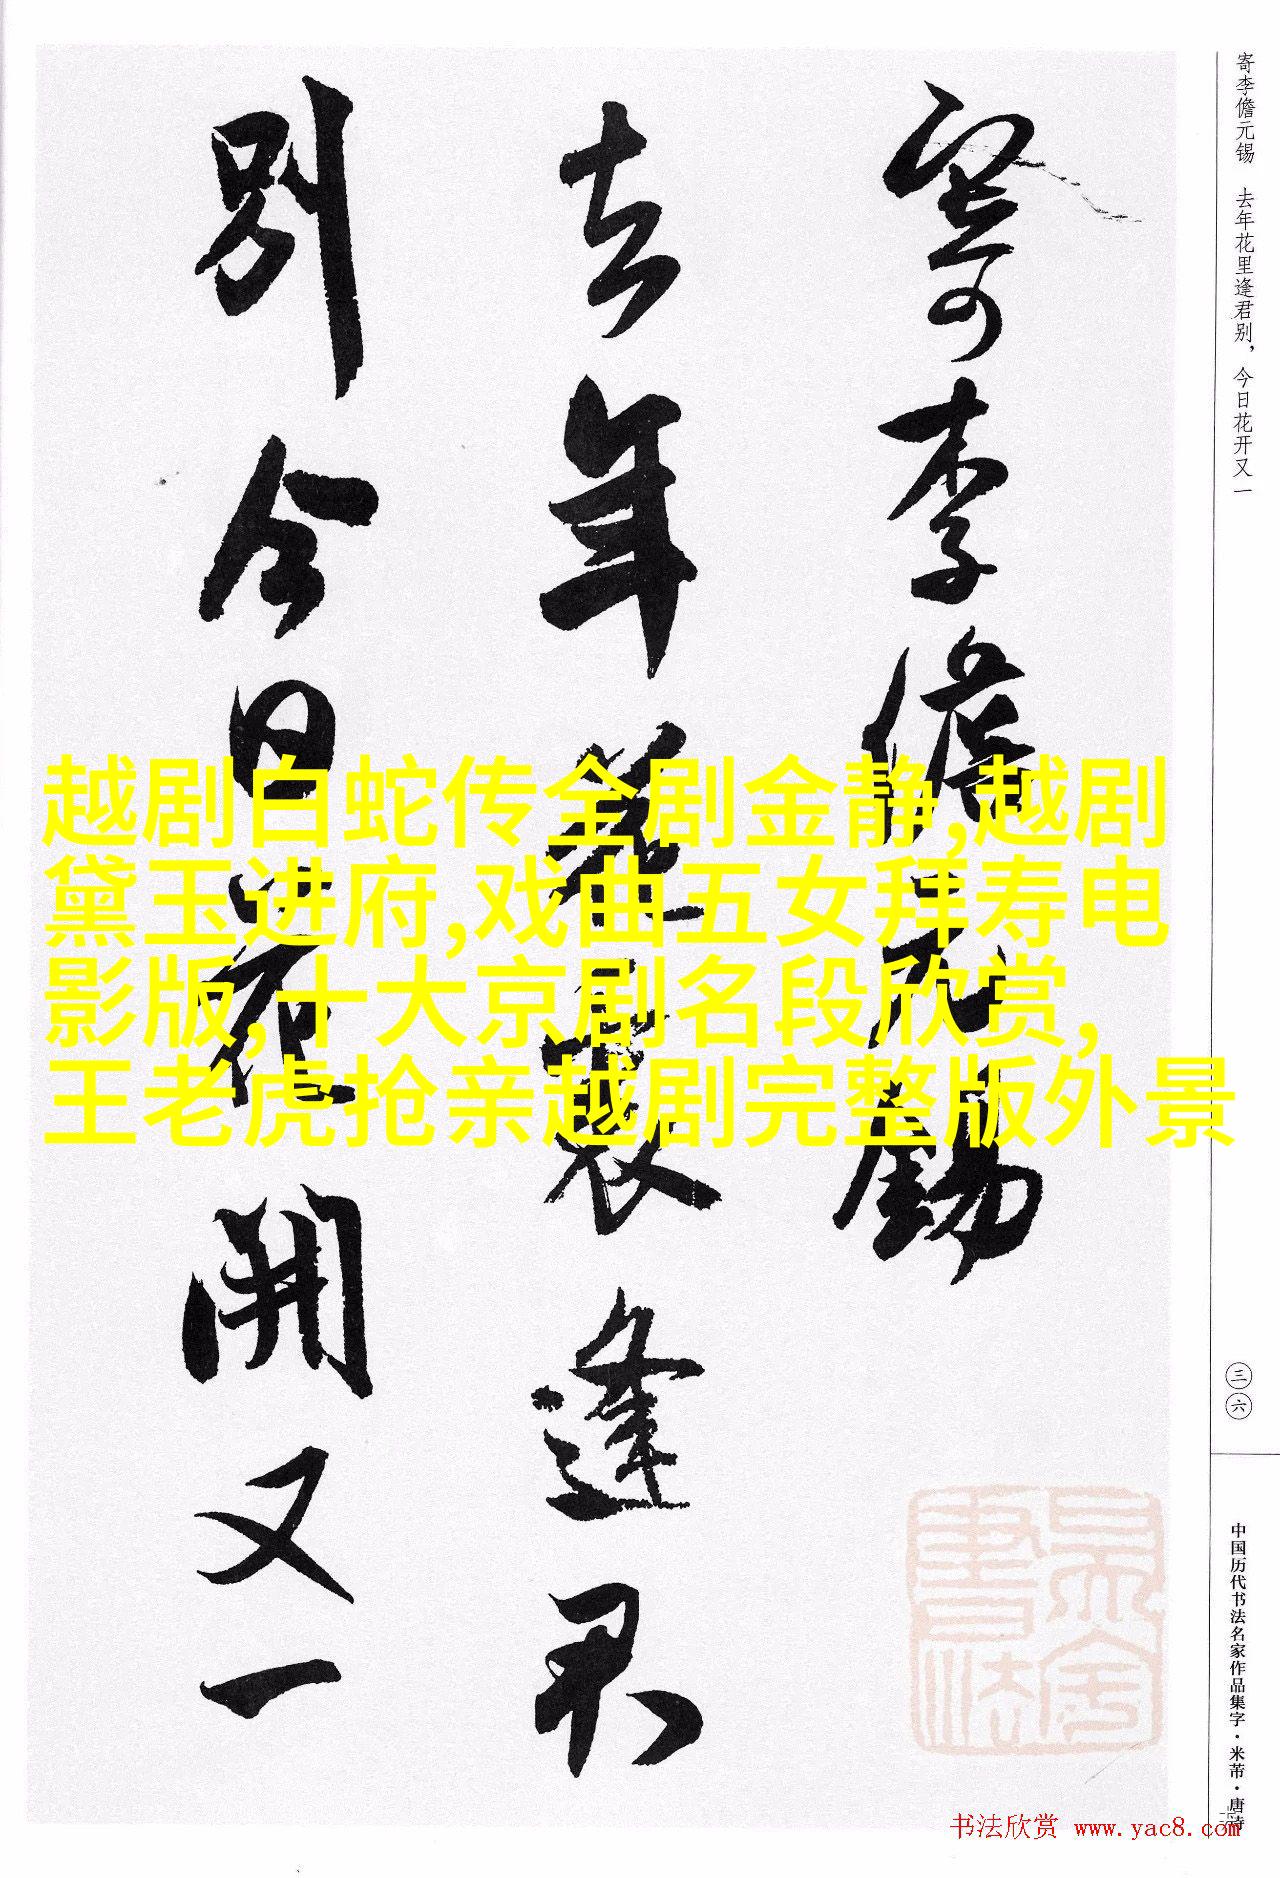 寄李儋元锡 去年花里逢君别，今日花开又一
寄李儋元錫
去年花裏逢君
別今日花開又一
越剧白蛇传全剧金静,越剧
黛玉进府,戏曲五女拜寿电
影版,十大京剧名段欣赏,
王老虎抢亲越剧完整版外景
三六
中国历代书法名家作品集字·米芾·唐诗
书法欣赏 www.yac8.com